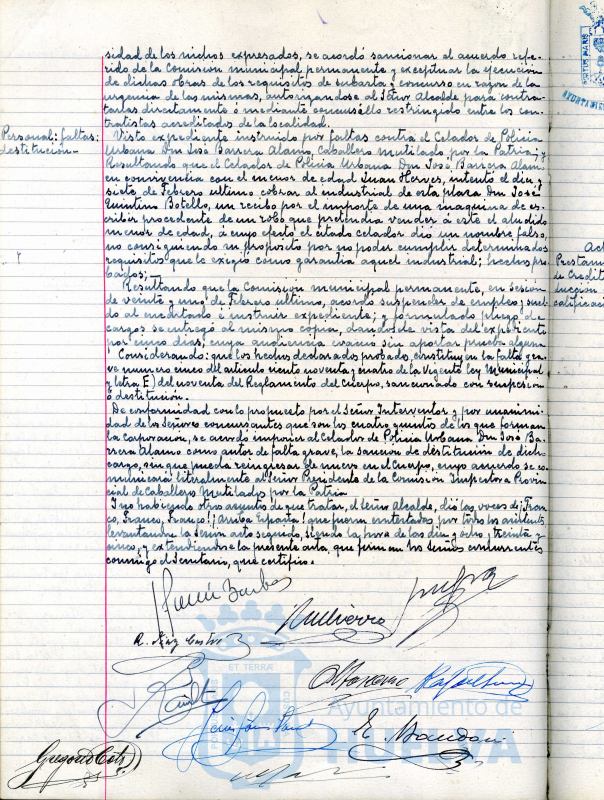 sidad de los nichos expresados, se acordó sancionar el acuerdo refe-
rido de la Comisión municipal permanente y exceptuar la ejecución
de dichas obras de los requisitos de subasta y concurso en razón de la
urgencia de las mismas, autorizándose al Señor Alcalde para contra-
tarlas directamente ó mediante concursillo restringido entre los con-
tratistas acreditados de la localidad.
Personal; faltas;
destitución.-
Visto expediente instruido por faltas contra el Celador de Policía
Urbana Don José Barrera Alamo, Caballero Mutilado por la Patria; y
Resultando que el Celador de Policía Urbana Don José Barrera Alamo
en convivencia con el menor de edad Juan Herves, intentó el dia
siete de Febrero ultimo cobrar al industrial de esta plaza Don José
Quintino Botello, un recibo por el importe de una maquina de es-
cribir procedente de un robo que pretendia vender á este el aludido
menor de edad, á cuyo efecto el citado celador dió un nombre falso,
no consiguiendo su proposito por no poder cumplir determinados
requisitos que le exigió como garantia aquel industrial; hechos pro-
bados;
Resultando que la Comisión municipal permanente, en sesión
de veinte y uno de Febrero ultimo, acordó suspender de empleo y suel-
do al encartado é instruir expediente; y formulado pliego de
cargos se entregó al mismo copia, dandosele vista del expediente
por cinco dias, cuya audiencia evacuó sin aportar prueba alguna
Considerando: que los hechos declarados probados, constituyen la falta gra-
ve numero cinco del articulo ciento noventa y cuatro de la vigente Ley Municipal
y letra E) del noventa del Reglamento del Cuerpo, sancionado con suspension
ó destitución.
De conformidad con lo propuesto por el Señor Interventor y por unanimi-
dad de los Señores concurrentes que son los cuatro quintos de los que forman
la Corporación, se acordó imponer al Celador de Policía Urbana Don José Ba-
rrera Alamo como autor de falta grave, la sanción de destitución de dicho
cargo, sin que pueda reingresar de nuevo en el Cuerpo, cuyo acuerdo se co-
municará literalmente al Señor Presidente de la Comisión Inspectora Provin-
cial de Caballeros Mutilados por la Patria.
Y no habiendo otros asuntos de que tratar, el Señor Alcalde, dió las voces de ¡Fran-
co, Franco, Franco! ¡Arriba España! que fueron contestadas por todos los asistentes
levantandose la sesión acto seguido, siendo la hora de las diez y ocho y treinta y
cinco, y extendiendose la presente acta, que firman los Señores concurrentes
conmigo el Secretario, que certifico.
ET TERRÆ
Ayuntamiento de
HUELVA
Act
Prestam
de Credit
ducción
calificac